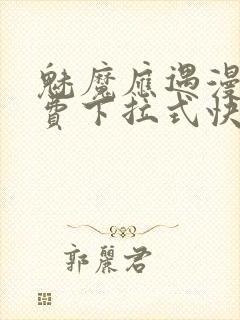 魅魔庶遇漫
費下拉式快
郭麗君